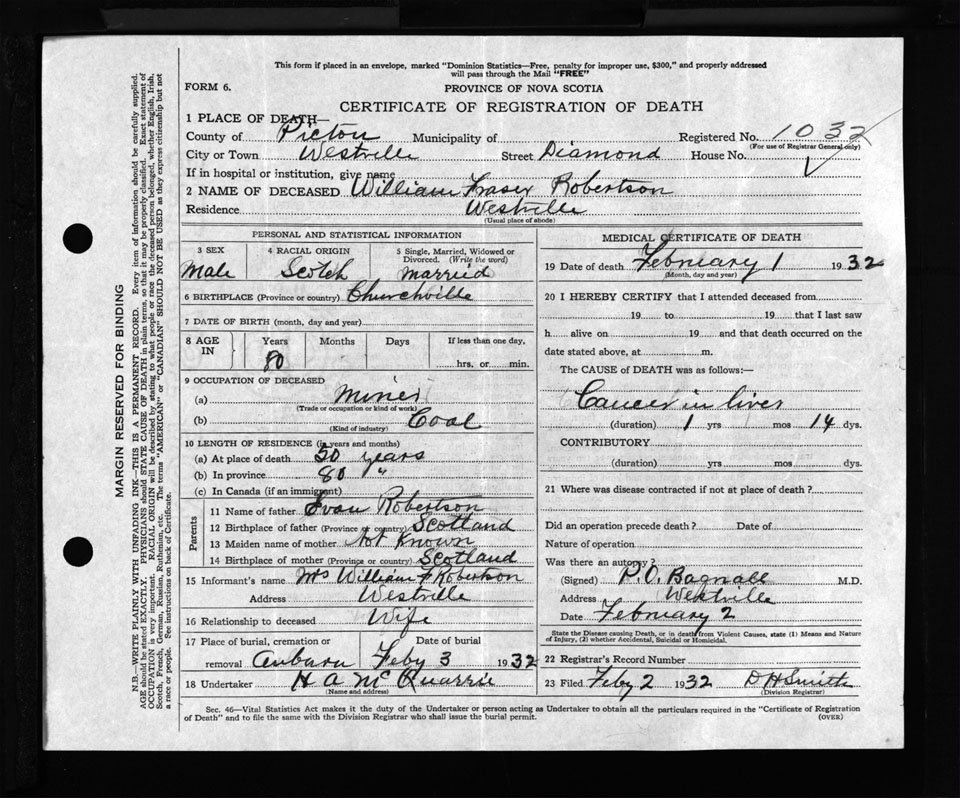 This form if placed in an envelope, marked "Dominion Statistics—Free, penalty for improper use, $300," and properly addressed
will pass through the Mail "FREE"
FORM 6.
PROVINCE OF NOVA SCOTIA
CERTIFICATE OF REGISTRATION OF DEATH
1 PLACE OF DEATH—
County of Pictou Municipality of Registered No. 1032
(For use of Registrar General only)
City or Town Westville Street Diamond House No.
If in hospital or institution, give name
2 NAME OF DECEASED William Fraser Robertson
Residence Westville
(Usual place of abode)
PERSONAL AND STATISTICAL INFORMATION
3 SEX 4 RACIAL ORIGIN 5 Single, Married, Widowed or
Divorced. (Write the word)
Male Scotch married
6 BIRTHPLACE (Province or country) Churchville
7 DATE OF BIRTH (month, day and year)
8 AGE IN Years Months Days If less than one day,
80 hrs. or min.
9 OCCUPATION OF DECEASED
(a) Miner
(Trade or occupation or kind of work)
(b) Coal
(Kind of industry)
10 LENGTH OF RESIDENCE (in years and months)
(a) At place of death 50 years
(b) In province 80 "
(c) In Canada (if an immigrant)
Parents
11 Name of father Evan Robertson
12 Birthplace of father (Province or country) Scotland
13 Maiden name of mother Not Known
14 Birthplace of mother (Province or country) Scotland
15 Informant's name Mrs William F Robertson
Address Westville
16 Relationship to deceased Wife
17 Place of burial, cremation or Date of burial
removal Auburn Feby 3 1932
18 Undertaker H A McQuarrie
(Name and address)
MEDICAL CERTIFICATE OF DEATH
19 Date of death February 1 1932
(Month, day and year)
20 I HEREBY CERTIFY that I attended deceased from
19 to 19 that I last saw
h alive on 19 and that death occurred on the
date stated above, at m.
The CAUSE of DEATH was as follows:—
Cancer in liver
(duration) 1 yrs mos 14 dys.
CONTRIBUTORY
(duration) yrs mos dys.
21 Where was disease contracted if not at place of death?
Did an operation precede death? Date of
Nature of operation
Was there an autopsy?
(Signed) P.O. Bagnall M.D.
Address Westville
Date February 2
State the Disease causing Death, or in death from Violent Causes, state (1) Means and Nature
of Injury, (2) whether Accidental, Suicidal or Homicidal.
22 Registrar's Record Number
23 Filed Feby 2 1932 D H Smith
(Division Registrar)
Sec. 46—Vital Statistics Act makes it the duty of the Undertaker or person acting as Undertaker to obtain all the particulars required in the "Certificate of Registration
of Death" and to file the same with the Division Registrar who shall issue the burial permit.
(OVER)
MARGIN RESERVED FOR BINDING
N.B.—WRITE PLAINLY WITH UNFADING INK—THIS IS A PERMANENT RECORD. Every item of information should be carefully supplied.
AGE should be stated EXACTLY. PHYSICIANS should STATE CAUSE OF DEATH in plain terms, so that it may be properly classified. Exact statement of
OCCUPATION is very important. RACIAL ORIGIN will be described by stating to what people or race the deceased person belonged, whether English, Irish,
Scotch, French, German, Russian, Ruthenian, etc. The terms "AMERICAN" or "CANADIAN" SHOULD NOT BE USED as they express citizenship but not
a race or people. See instructions on back of Certificate.